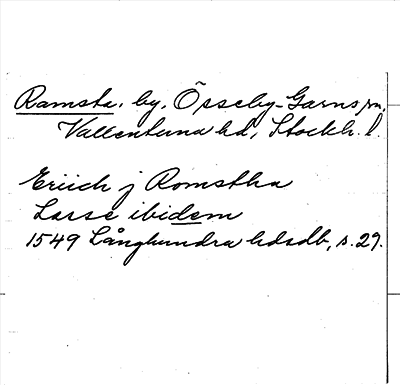 Ramsta, by, Össeby-Garns sn,
Vallentuna hd, Stockh. l.
Eriich j Romstha
Lasse ibidem
1549 Långhundra hdsdb, s. 29.